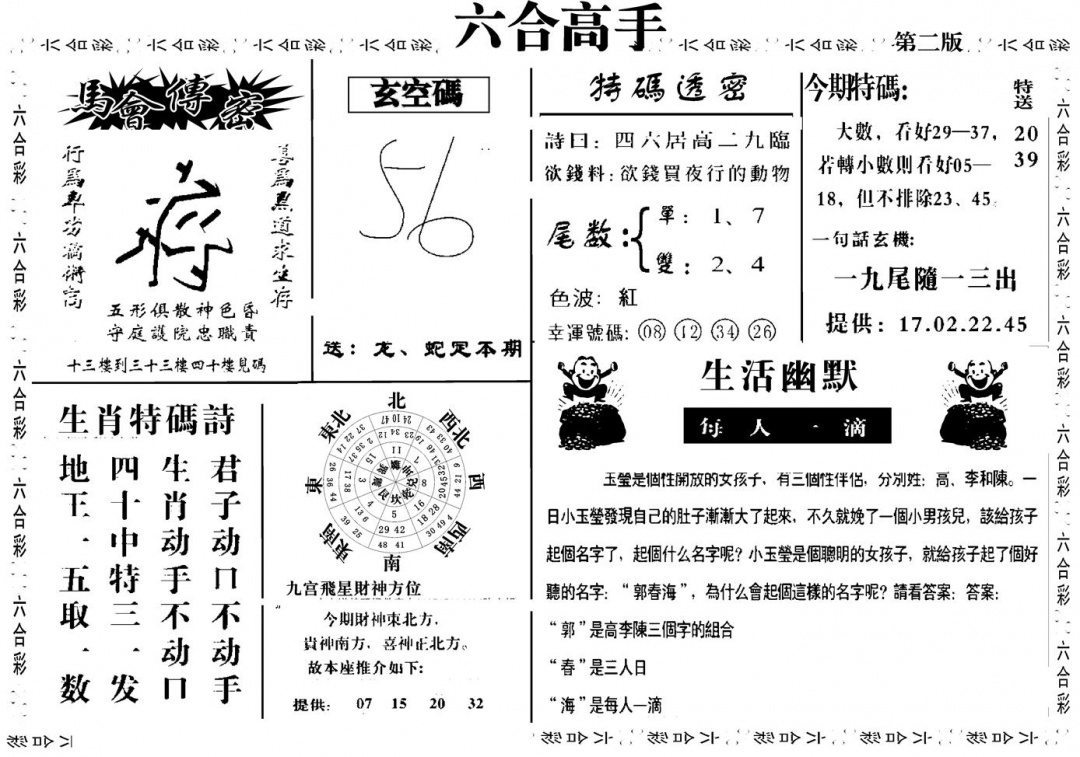 六合高手
第二版
馬會傳密
五形俱散神色昏
守庭護院忠職責
十三樓到三十三樓四十樓見碼
玄空碼
送：龙、蛇定本期
特碼透密
詩曰：四六居高二九臨
欲錢料：欲錢買夜行的動物
尾数：
單：1、7
雙：2、4
色波：紅
幸運號碼：08 12 34 26
今期特碼：
特送
20
39
大數，看好29—37，
若轉小數則看好05—
18，但不排除23、45
一句話玄機：
一九尾隨一三出
提供：17.02.22.45
生肖特碼詩
君子动口不动手
生肖动手不动口
四十中特三一发
地王一五取一数
北
西北
西
西南
南
東南
東
東北
九宫飛星財神方位
今期財神東北方，
貴神南方，喜神正北方。
故本座推介如下：
提供： 07 15 20 32
生活幽默
每人一滴
玉瑩是個性開放的女孩子，有三個性伴侶，分別姓：高、李和陳。一
日小玉瑩發現自己的肚子漸漸大了起來，不久就娩了一個小男孩兒，該給孩子
起個名字了，起個什么名字呢？小玉瑩是個聰明的女孩子，就給孩子起了個好
聽的名字：“郭春海”，為什么會起個這樣的名字呢？請看答案：答案：
“郭”是高李陳三個字的組合
“春”是三人日
“海”是每人一滴